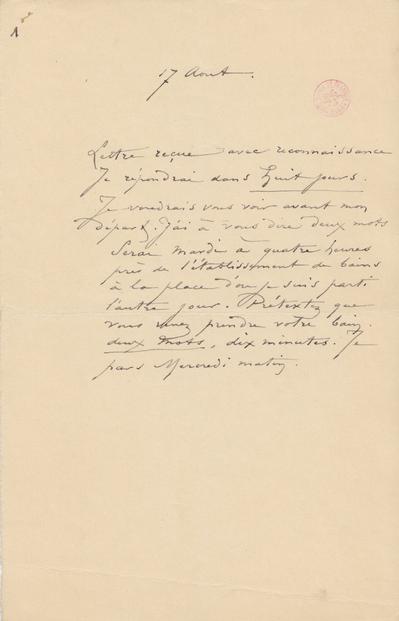 1
17 Aout.
Lettre reçue avec reconnaissance
Je répondrai dans huit jours.
Je voudrais vous voir avant mon
départ. J'ai à vous dire deux mots
Serai mardi à quatre heures
près de l'établissement de bains
à la place d'où je suis parti
l'autre jour. Prétextez que
vous venez prendre votre bain.
deux mots, dix minutes. Je
pars Mercredi matin.